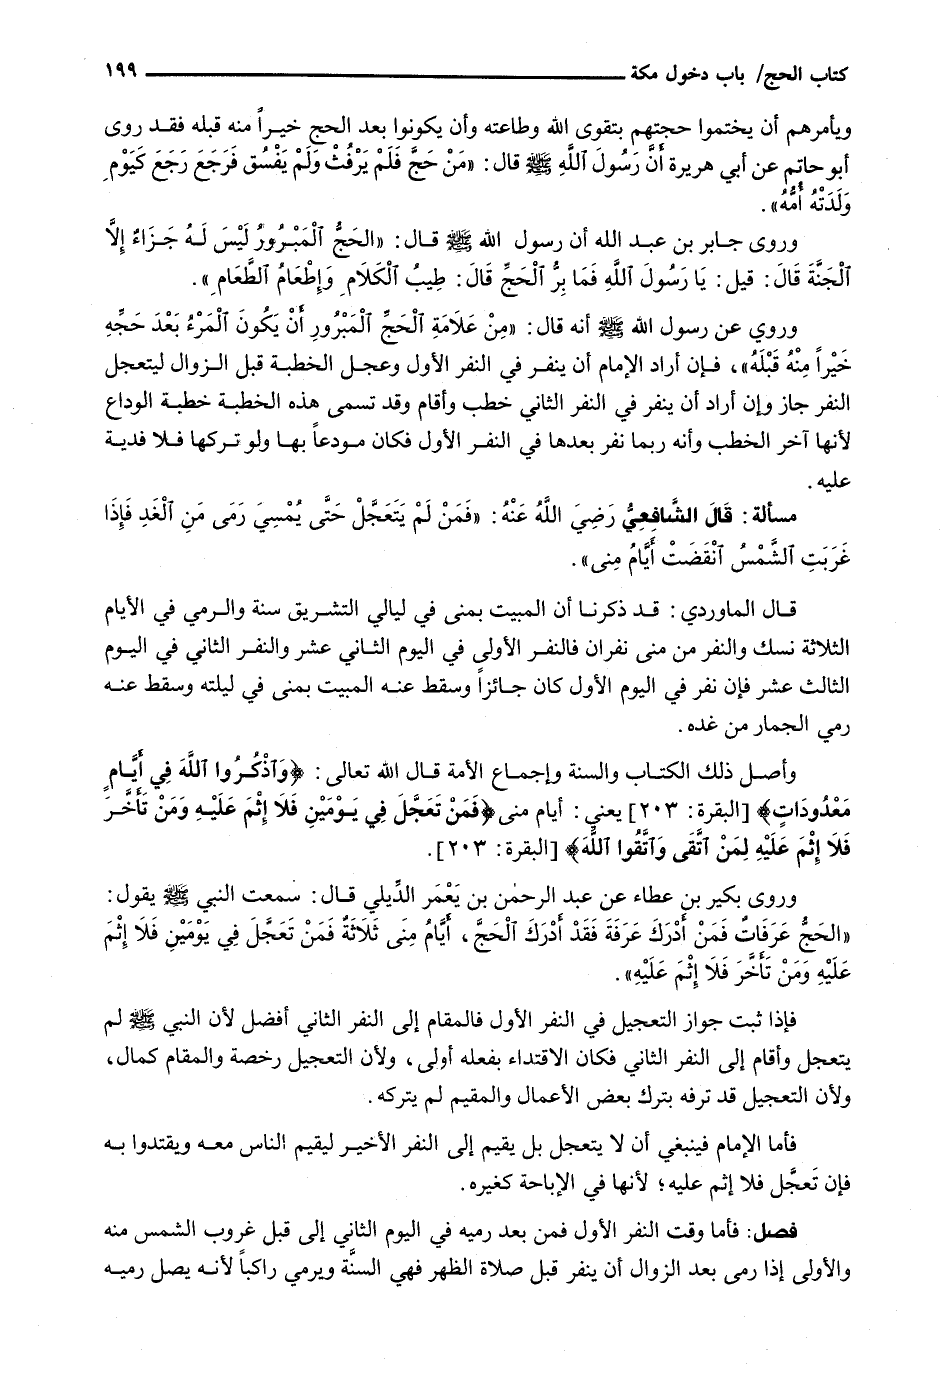 كتاب الحج/ باب دخول مكة ــــــــــــــــــــ ١٩٩
ويأمرهم أن يختموا حجتهم بتقوى الله وطاعته وأن يكونوا بعد الحج خيراً منه قبله فقد روى
أبو حاتم عن أبي هريرة أَنَّ رَسُولَ اللَّهِ ﷺ قال: «مَنْ حَجَّ فَلَمْ يَرْفُثْ وَلَمْ يَفْسُق فَرَجَعَ رَجَعَ كَيَوْمِ
وَلَدَتْهُ أُمُّهُ».
وروى جابر بن عبد الله أن رسول الله ﷺ قال: «الحَجُّ ٱلْمَبْرُورُ لَيْسَ لَهُ جَزَاءٌ إِلَّا
ٱلْجَنَّةَ قَالَ: قيل: يَا رَسُولَ ٱللَّهِ فَمَا بِرُّ ٱلْحَجِّ قَالَ: طِيبُ ٱلْكَلَامِ وَإِطْعَامُ ٱلطَّعَامِ».
وروي عن رسول الله ﷺ أنه قال: «مِنْ عَلَامَةِ ٱلْحَجِّ ٱلْمَبْرُورِ أَنْ يَكُونَ ٱلْمَرْءُ بَعْدَ حَجِّهِ
خَيْراً مِنْهُ قَبْلَهُ»، فإن أراد الإمام أن ينفر في النفر الأول وعجل الخطبة قبل الزوال ليتعجل
النفر جاز وإن أراد أن ينفر في النفر الثاني خطب وأقام وقد تسمى هذه الخطبة خطبة الوداع
لأنها آخر الخطب وأنه ربما نفر بعدها في النفر الأول فكان مودعاً بها ولو تركها فلا فدية
عليه.
مسألة: قَالَ الشَّافِعِيُّ رَضِيَ اللَّهُ عَنْهُ: «فَمَنْ لَمْ يَتَعَجَّلْ حَتَّى يُمْسِيَ رَمَى مَنِ ٱلْغَدِ فَإِذَا
غَرَبَتِ ٱلشَّمْسُ ٱنْقَضَتْ أَيَّامُ مِنى».
قال الماوردي: قد ذكرنا أن المبيت بمنى في ليالي التشريق سنة والرمي في الأيام
الثلاثة نسك والنفر من منى نفران فالنفر الأولى في اليوم الثاني عشر والنفر الثاني في اليوم
الثالث عشر فإن نفر في اليوم الأول كان جائزاً وسقط عنه المبيت بمنى في ليلته وسقط عنه
رمي الجمار من غده.
وأصل ذلك الكتاب والسنة وإجماع الأمة قال الله تعالى: ﴿وَٱذْكُرُوا ٱللَّهَ فِي أَيَّامٍ
مَعْدُودَاتٍ﴾ [البقرة: ٢٠٣] يعني: أيام منى ﴿فَمَنْ تَعَجَّلَ فِي يَوْمَيْنِ فَلَا إِثْمَ عَلَيْهِ وَمَنْ تَأَخَّرَ
فَلَا إِثْمَ عَلَيْهِ لِمَنْ ٱتَّقَى وَٱتَّقُوا ٱللَّهَ﴾ [البقرة: ٢٠٣].
وروى بكير بن عطاء عن عبد الرحمٰن بن يَعْمَر الدِّيلي قال: سمعت النبي ﷺ يقول:
«الحَجُّ عَرَفَاتٌ فَمَنْ أَدْرَكَ عَرَفَةَ فَقَدْ أَدْرَكَ ٱلْحَجَّ، أَيَّامُ مِنَى ثَلَاثَةٌ فَمَنْ تَعَجَّلَ فِي يَوْمَيْنِ فَلَا إِثْمَ
عَلَيْهِ وَمَنْ تَأَخَّرَ فَلَا إِثْمَ عَلَيْهِ».
فإذا ثبت جواز التعجيل في النفر الأول فالمقام إلى النفر الثاني أفضل لأن النبي ﷺ لم
يتعجل وأقام إلى النفر الثاني فكان الاقتداء بفعله أولى، ولأن التعجيل رخصة والمقام كمال،
ولأن التعجيل قد ترفه بترك بعض الأعمال والمقيم لم يتركه.
فأما الإمام فينبغي أن لا يتعجل بل يقيم إلى النفر الأخير ليقيم الناس معه ويقتدوا به
فإن تَعجَّل فلا إثم عليه؛ لأنها في الإباحة كغيره.
فصل: فأما وقت النفر الأول فمن بعد رميه في اليوم الثاني إلى قبل غروب الشمس منه
والأولى إذا رمى بعد الزوال أن ينفر قبل صلاة الظهر فهي السنَّة ويرمي راكباً لأنه يصل رميه